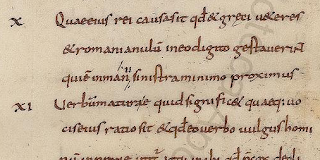 X Quae eius rei causa sit qđ & greci ueteres
& romani anulum in eo digito gestauerint
qui e in manu sinistra minimo proximus
XI Uerbum maturae quid signific& quaeq; uo
cis eius ratio sit & qđ eo uerbo uulgus homi